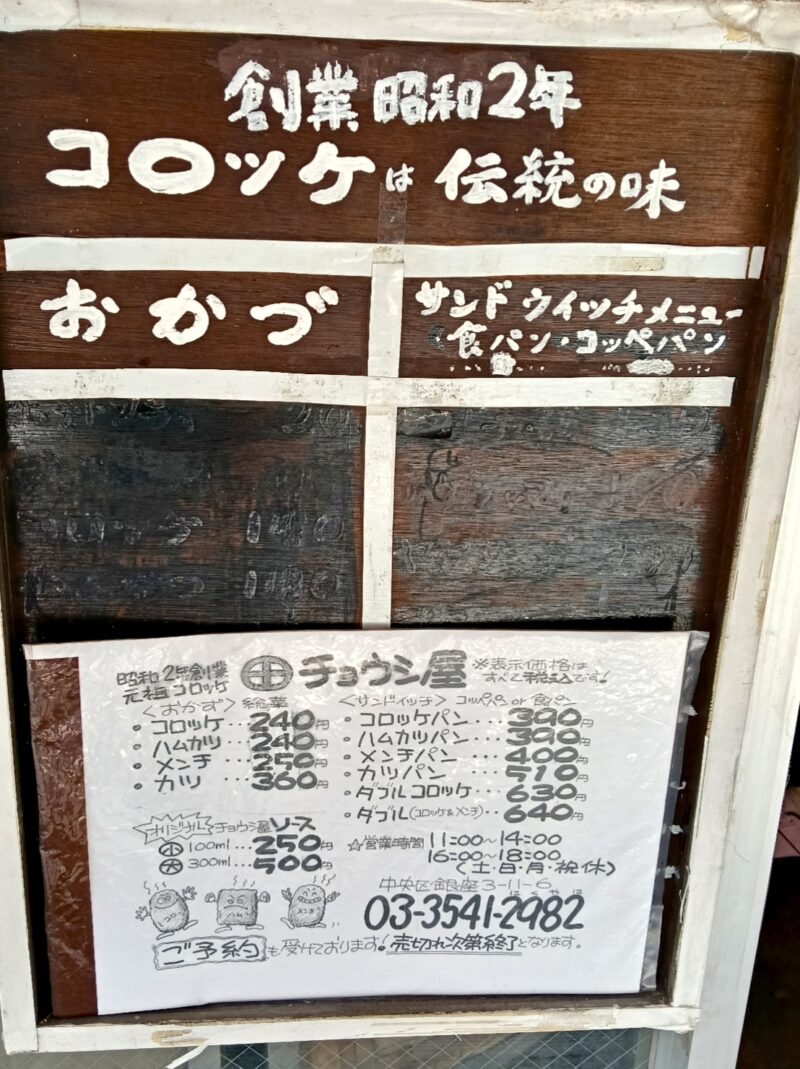 創業 昭和2年
コロッケは 伝統の味
おかづ
サンドウイッチメニュー
食パン・コッペパン
昭和2年創業
元祖コロッケ
チョウシ屋
※表示価格は
すべて税込です!
<おかず> 惣菜
・コロッケ…240円
・ハムカツ…240円
・メンチ…250円
・カツ…360円
<サンドイッチ> コッペパン or 食パン
・コロッケパン…390円
・ハムカツパン…390円
・メンチパン…400円
・カツパン…510円
・ダブルコロッケ…630円
・ダブル(コロッケ&メンチ)…640円
オリジナル チョウシ屋ソース
小 100ml…250円
大 300ml…500円
☆営業時間 11:00〜14:00
16:00〜18:00
(土・日・月・祝 休)
コロ
ハム
メンチ
中央区銀座3-11-6
03-3541-2982
ご予約も受けております!売切れ次第終了となります。